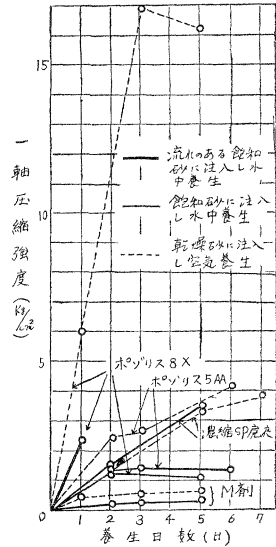 15
10
5
0
一軸圧縮強度(Kg/cm²)
流れのある飽和
砂に注入し水
中養生
飽和砂に注入
し水中養生
乾燥砂に注入
し空気養生
ポゾリス8X
ポゾリス5AA
濃縮SP廃液
M剤
1 2 3 4 5 6 7
養生日数(日)